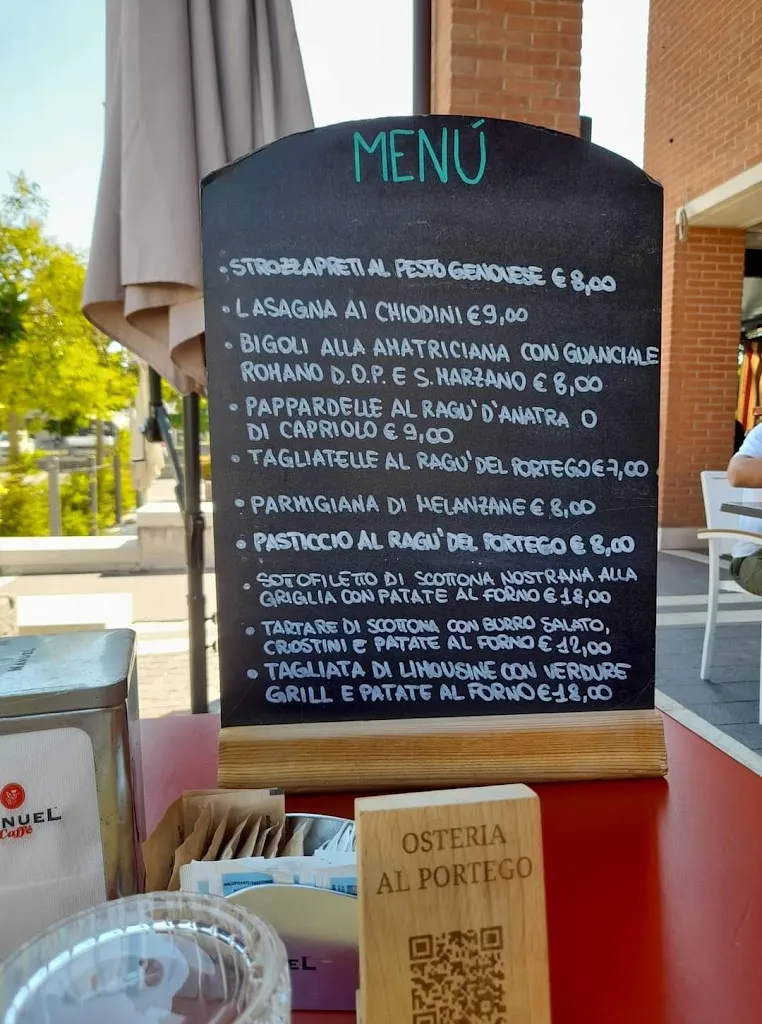 MENÚ
• STROZZAPRETI AL PESTO GENOVESE € 8,00
• LASAGNA AI CHIODINI € 9,00
• BIGOLI ALLA AMATRICIANA CON GUANCIALE
ROMANO D.O.P. E S. MARZANO € 8,00
• PAPPARDELLE AL RAGU' D'ANATRA O
DI CAPRIOLO € 9,00
• TAGLIATELLE AL RAGU' DEL PORTEGO € 7,00
• PARMIGIANA DI MELANZANE € 8,00
• PASTICCIO AL RAGU' DEL PORTEGO € 8,00
• SOTTOFILETTO DI SCOTTONA NOSTRANA ALLA
GRIGLIA CON PATATE AL FORNO € 18,00
• TARTARE DI SCOTTONA CON BURRO SALATO,
CROSTINI E PATATE AL FORNO € 12,00
• TAGLIATA DI LIMOUSINE CON VERDURE
GRILL E PATATE AL FORNO € 18,00
NUEL
Caffè
OSTERIA
AL PORTEGO
EL